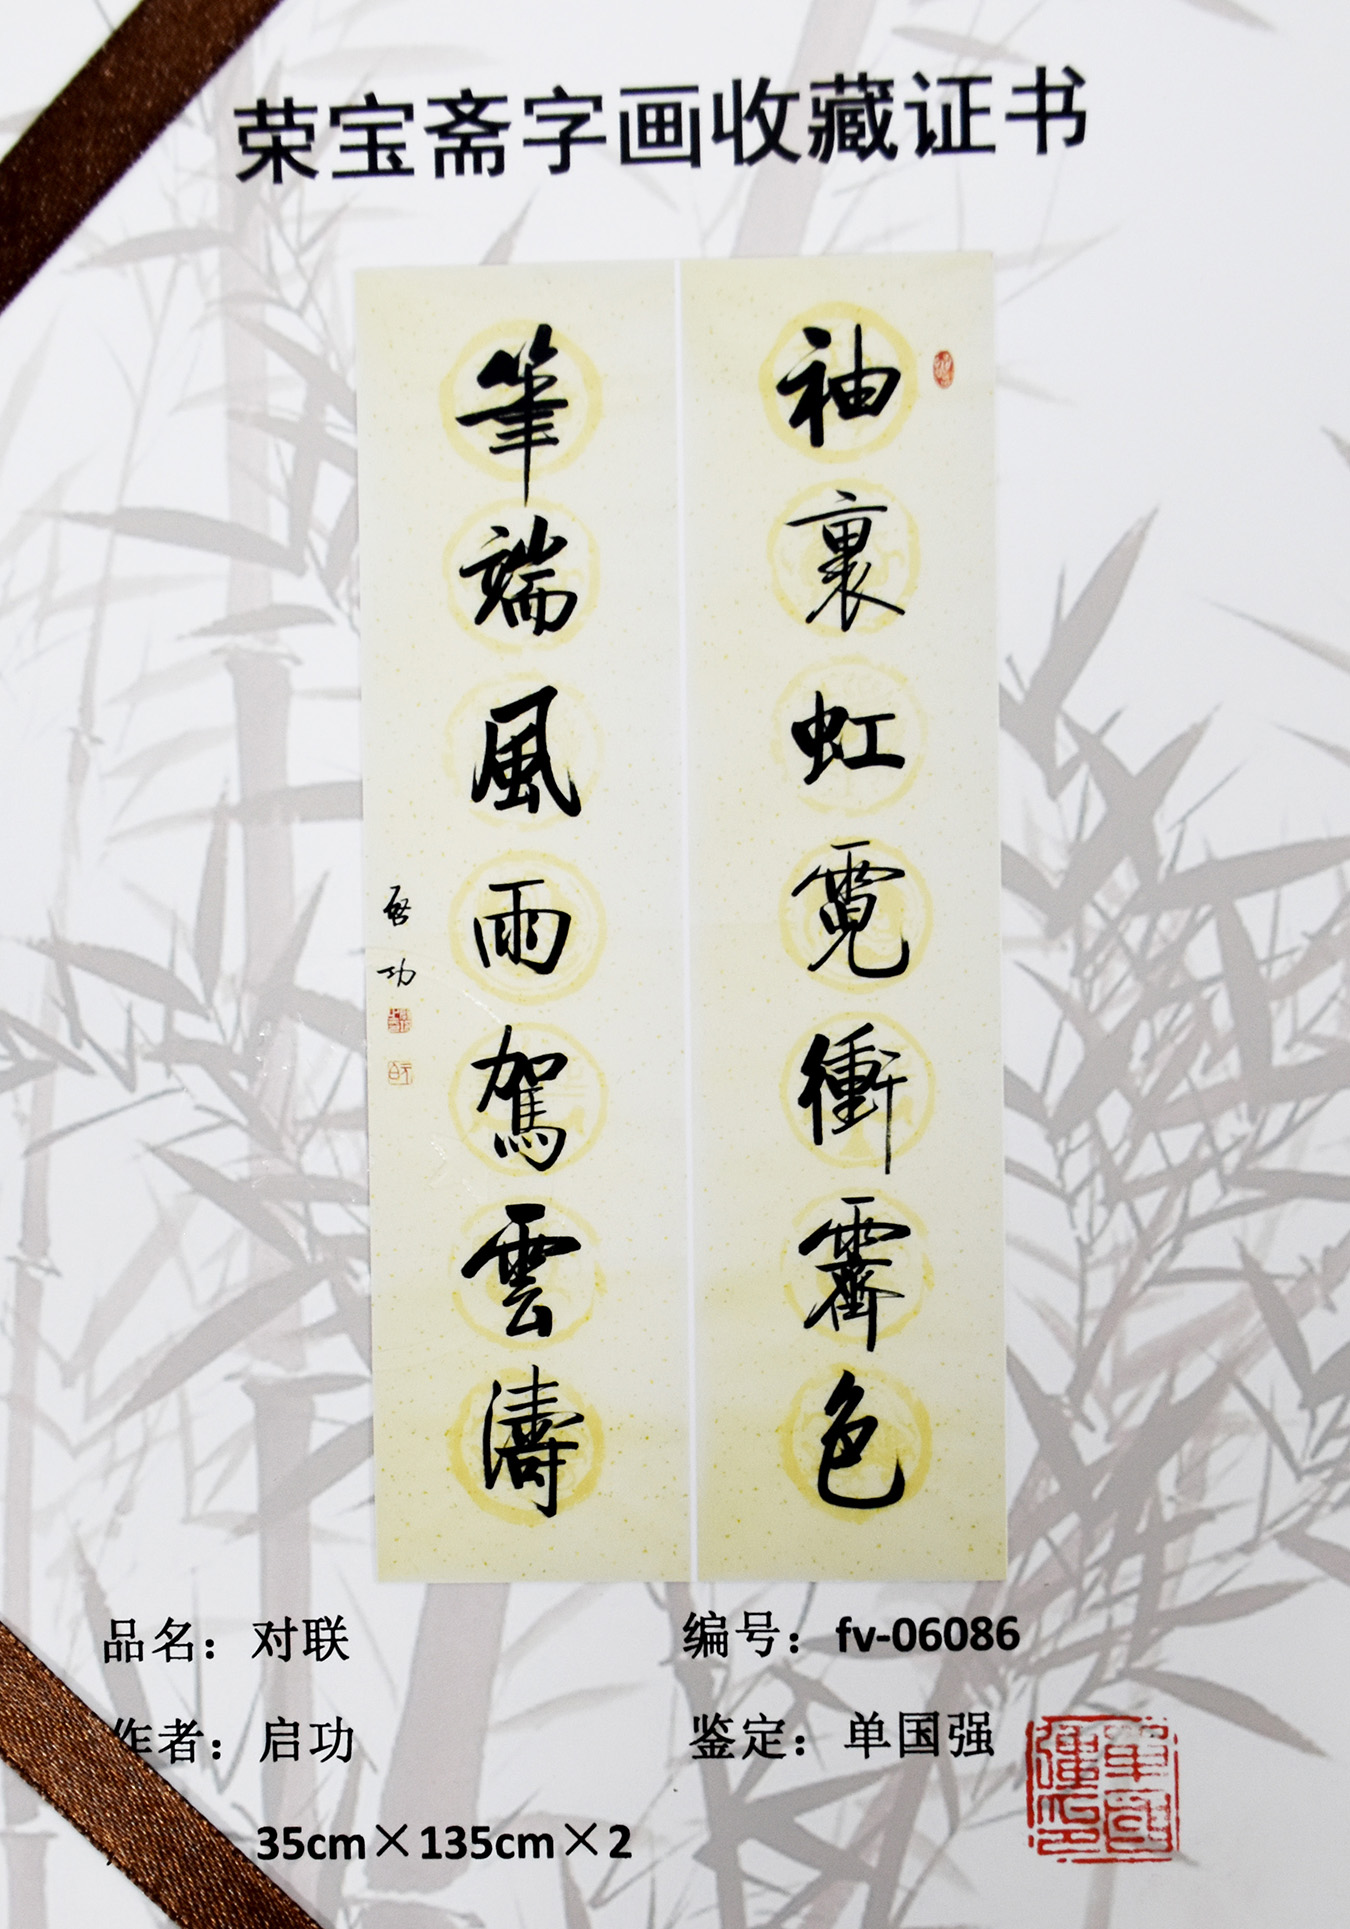 荣宝斋字画收藏证书
袖裏虹霓衝霽色
筆端風雨駕雲濤
啓功
品名：对联
编号：fv-06086
作者：启功
鉴定：单国强
35cm×135cm×2
單國強印